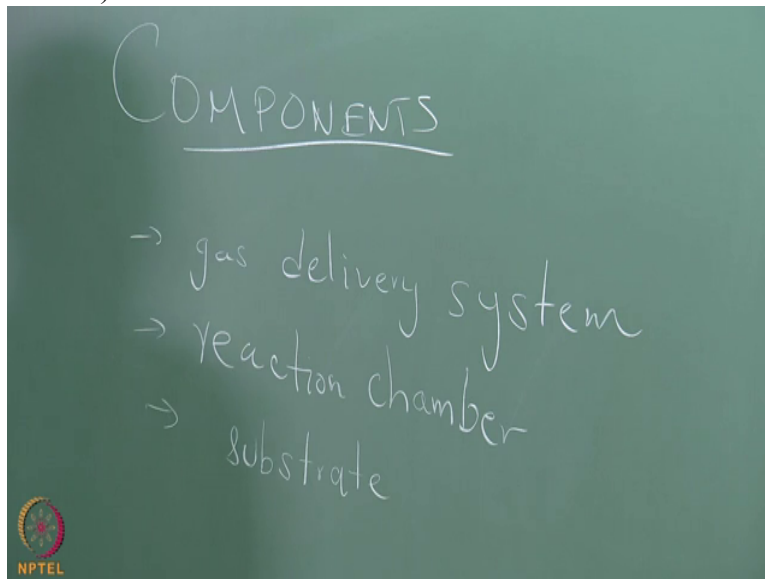 COMPONENTS
→ gas delivery system
→ reaction chamber
→ substrate
NPTEL